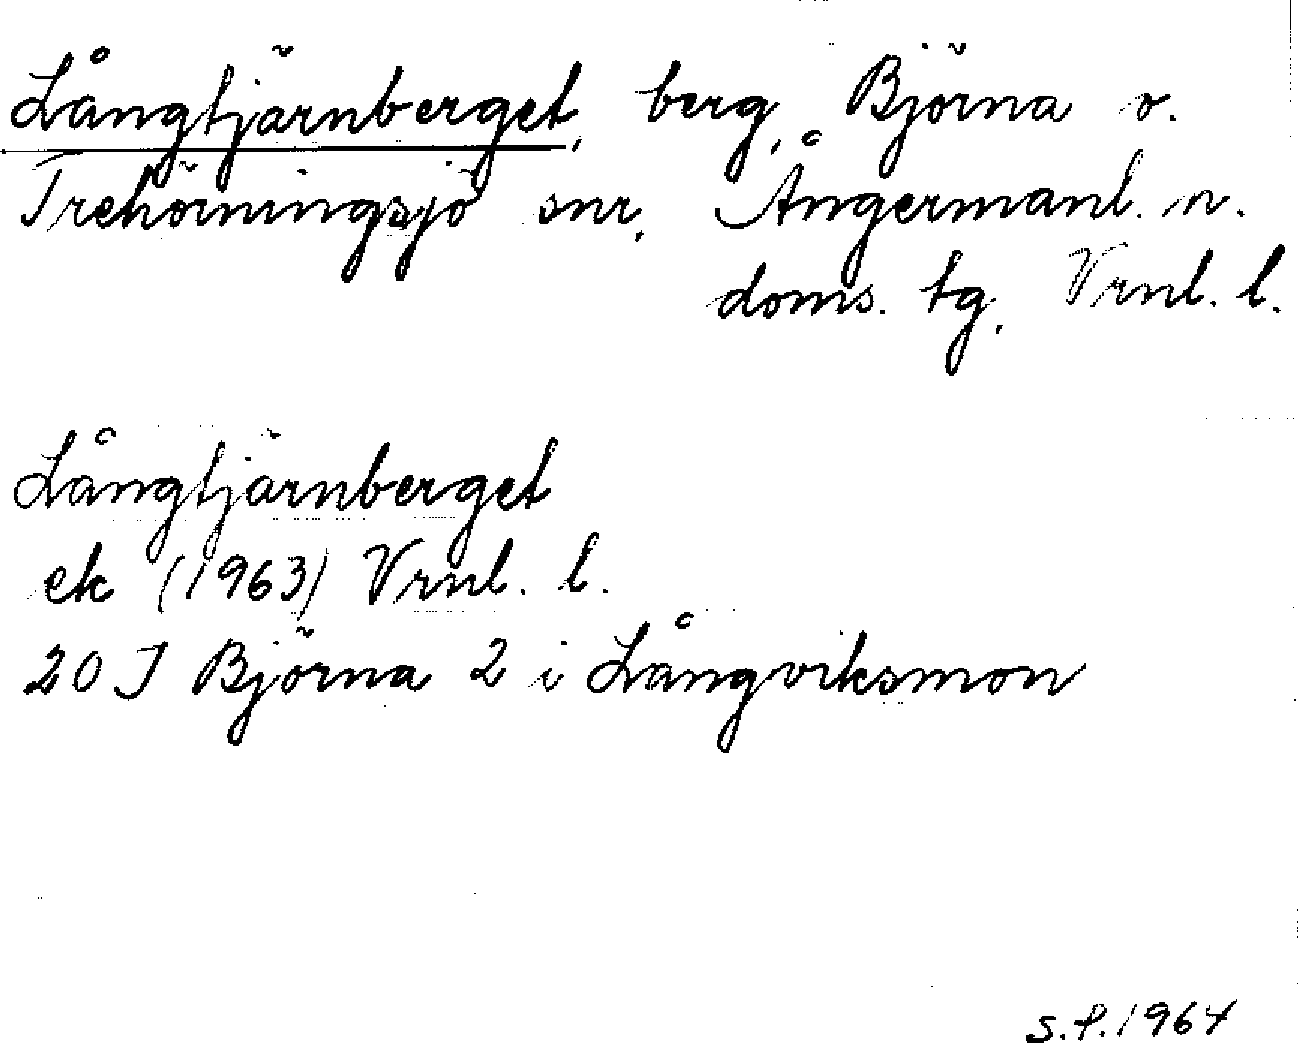 Långtjärnberget, berg, Björna o.
Trehörningsjö snr, Ångermanl. n.
doms. tg, Vrnl. l.
Långtjärnberget
ek (1963) Vrnl. l.
20 J Björna 2 i Långviksmon
S.P. 1964